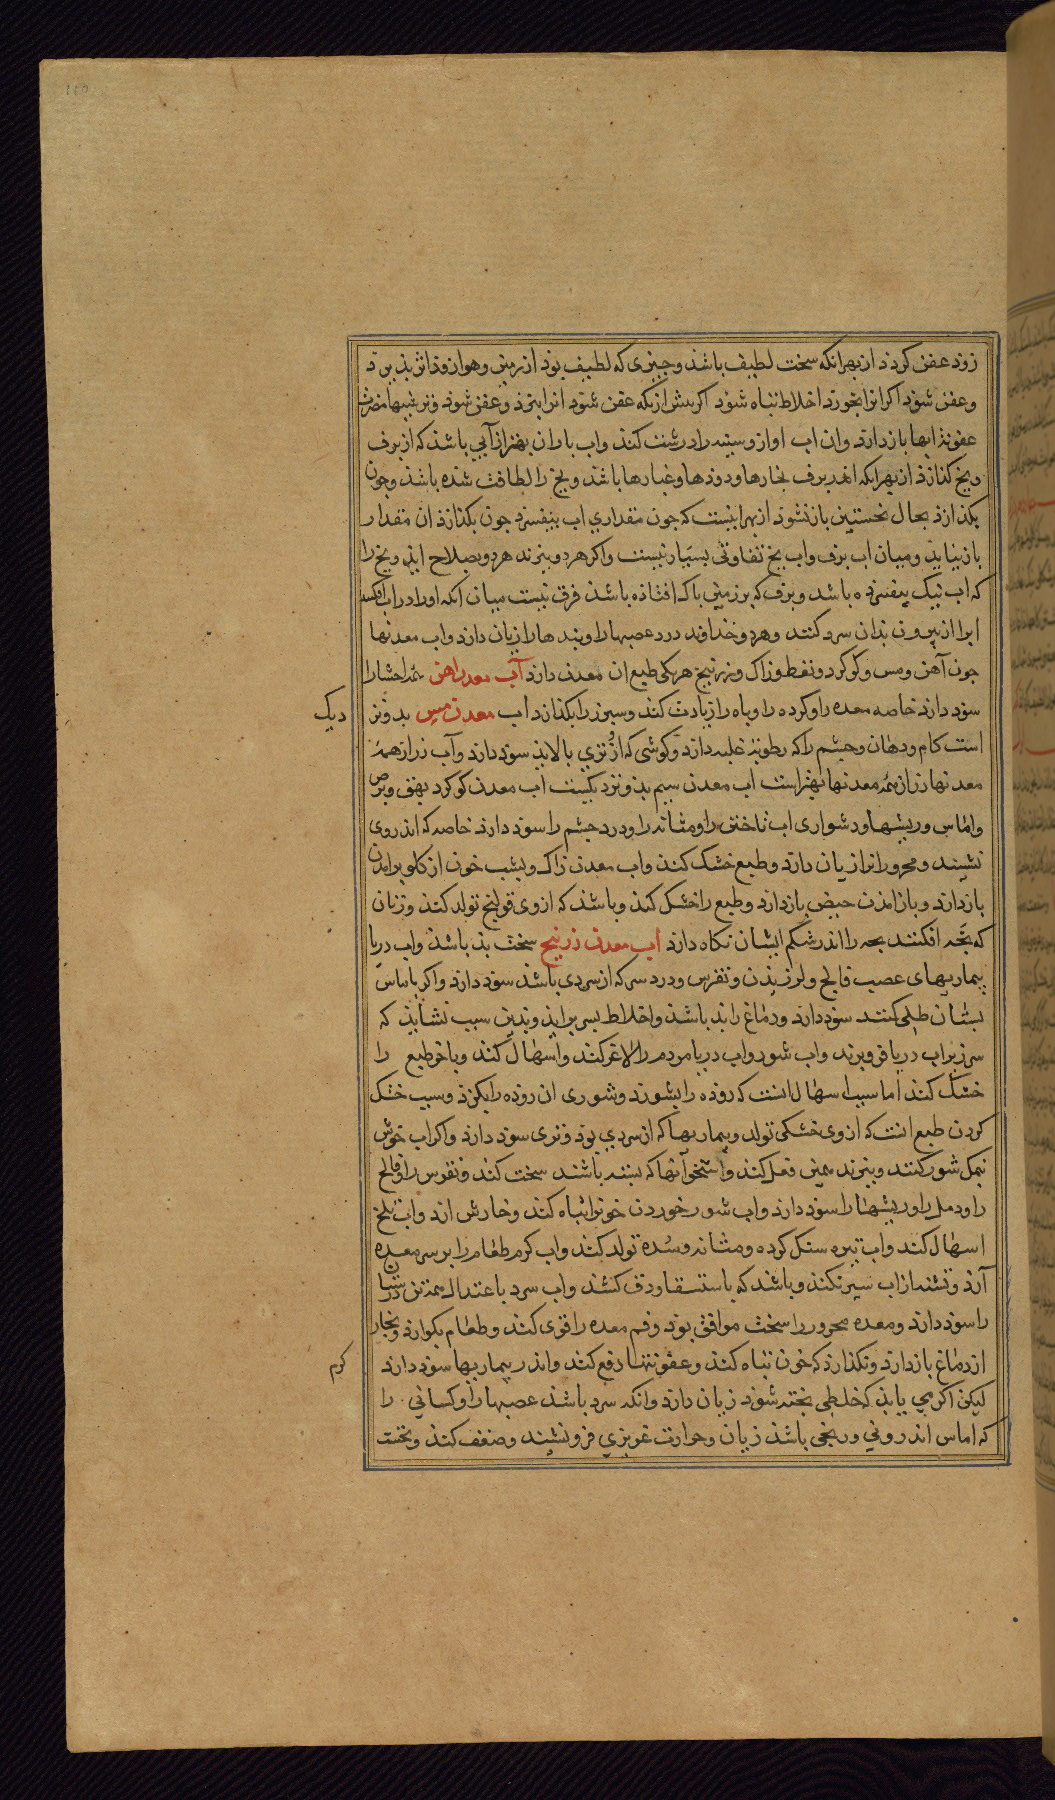 زود عفن کردد از بهر انکه سخت لطیف باشذ و جیزی که لطیف بوذ از زمین و هوا زوذ اثر بذیرد
و عفن شوذ اکر انرا بخورند اخلاط تباه شوذ اکر بیش از انکه عفن شوذ انرا بپزند و عفن شوذ و ترشیها مضرت
عفونة ابها باز دارد و ان اب اواز و سینه را درشت کند واب باران بهتر از آبی باشذ که از برف
و یخ کدازذ از بهر انکه اندر برف بخارها و دوذها و غبارها باشذ و یخ را لطافت شده باشذ و جون
بکدازذ بحال نخستین باز نشوذ از بهر اینست که جون مقداری اب بیفسرد جون بکدازذ ان مقدار
باز نیابذ و میان اب برف واب یخ تفاوتی بسیار نیست واکر هر دو بپزند هر دو بصلاح ایذ و یخ را
که اب نیک بیفسرده باشد و برف که بر زمین باک افتاذه باشذ فرق نیست میان انکه او را در اب افکنند
ابرا از بیرون بذان سرد کنند و هر دو خذاوند درد عصبها را و بندها را زیان دارد واب معدنها
جون آهن و مس و کوکرد و نفط و زاک و زرنیخ هر یکی طبع ان معدن دارد آب معدن اهن همه احشا را
سوذ دارد خاصه معده را و کرده را و باه را زیادت کند و سپرز را بکدازد اب معدن مس بد و تر
دیک
است کام و دهان و جشم را که رطوبة غلبه دارد و کوشی که از تری بالایذ سوذ دارد وآب زر از همه
معدنها زر از همه معدنها بهتر است اب معدن سیم بذو نزدیکست اب معدن کوکرد بهق و برص
واماس و ریشها و دشواری اب تاختن را و مثانه را و درد جشم را سوذ دارد خاصه که اندر وی
نشینند و محرور انرا زیان دارد و طبع خشک کند واب معدن زاک و بشب خون از کلو برامدن
باز دارد و باز امدن حیض باز دارد و طبع را خشک کند و باشد که از وی قولنج تولد کند و زنان
که بچه افکنند بچه را اندر شکم ایشان نکاه دارد اب معدن زرنیخ سخت بد باشذ واب دریا
بیماریهای عصب فالج و لرزیذن و نقرس و درد سر که از سردی باشذ سوذ دارد واکر باماس
بستان طلی کنند سوذ دارد و دماغ را بد باشذ واخلاط بسر برایذ و بدین سبب نشایذ که
سر زیر اب دریا فرو برند واب شور واب دریا مردم را لاغر کند واسهال کند و باخر طبع را
خشک کند اما سبب اسهال انست که روده را بشوید و شوری ان روده را بکزد و سبب خشک
کردن طبع انست که از وی خشکی تولد و بیماریها که از سردی بود و تری سوذ دارد واکر اب خوش
بنمک شور کنند و بپزند همین فعل کند و استخوانها که بسته باشد سخت کند و نقرس را و فالج
را و دمل را و ریشها را سوذ دارد واب شور خوردن خونرا تباه کند و خارش ارد واب تلخ
اسهال کند واب تیره سنک کرده و مثانه و سده تولد کند واب کرم طعام را بر سر معده
آرد و تشنه از اب سیر نکند و باشد که باستسقا و دق کشد واب سرد باعتدال همه تن درستان
را سوذ دارد و معده محرور را سخت موافق بود و فم معده را قوی کند و طعام بکوارد و بخار
از دماغ باز دارد و نکذارد که خون تباه کند و عفونتها دفع کند واندر بیماریها سوذ دارد
کرم
لیکن اکر می باید که خلطی بخته شوذ زیان دارد وانکه سرد باشذ عصبها را و کسانی را
که اماس اندرونی و رنجی باشذ زیان و حرارت غریزی فرو نشیند و ضعف کند و نخست